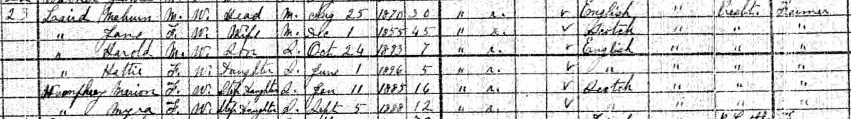 23 Laird Mehurn M. W. Head M. Aug 25 1870 30 " r. ✓ English " Presbt. Farmer
" Jane F. W. Wife M. Dec 1 1855 45 " r. ✓ Scotch " " "
" Harold M. W. Son S. Oct 24 1893 7 " r. ✓ English " "
" Hattie F. W. Daughter S. June 1 1896 5 " r. ✓ " " "
Humphrey Merion F. W. Step Daughter S. Jan 11 1885 16 " r. ✓ Scotch " "
" Myra F. W. Step Daughter S. Sept 5 1888 12 " r. ✓ " " "